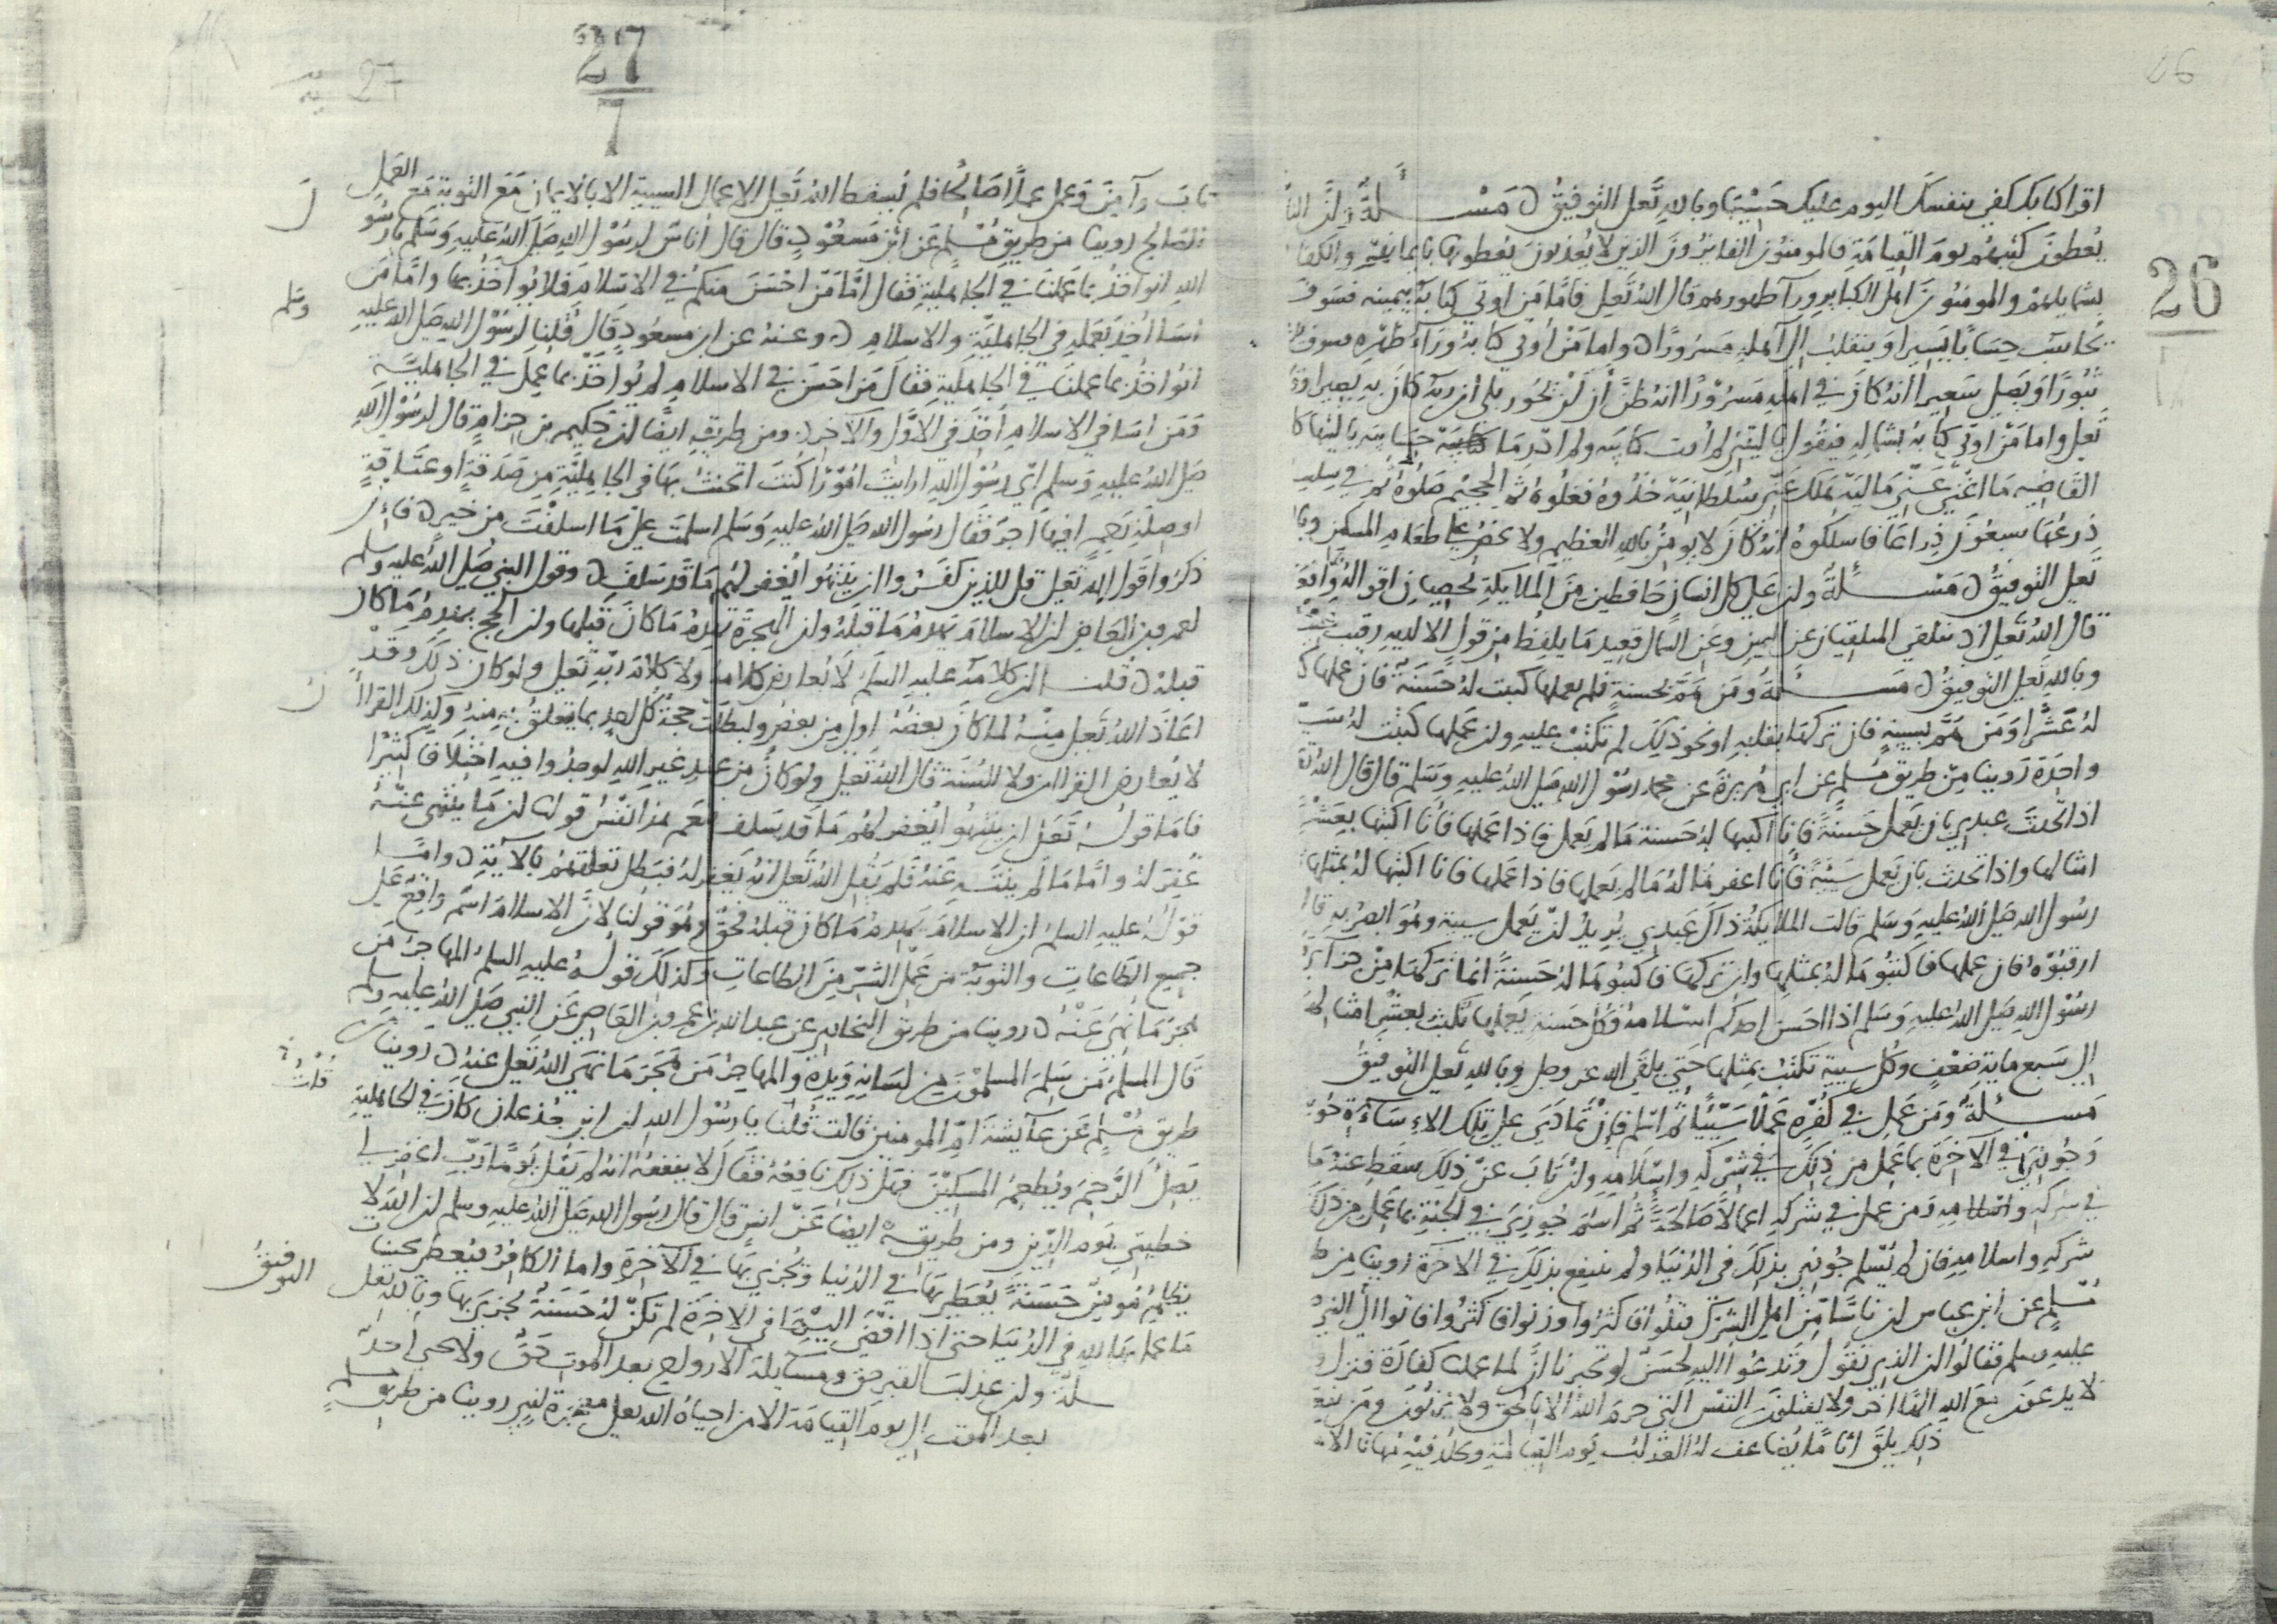 26
اقرا كتابك كفي بنفسك اليوم عليك حسيبا وبالله تعلى التوفيق ه مسئلة وان النا
يعطون كتبهم يوم القيامة فالمومنون الفايزون الذين لا يعذبون يعطونها بايمانهم والكفا
بشمايلهم والمومنون اهل الكباير ورآ ظهورهم قال الله تعلى فاما من اوتي كتابه بيمينه فسوف
يحاسب حسابا يسيرا وينقلب الى اهله مسرورا ه واما من اوتي كتابه ورآ ظهره فسوف
ثبورا ويصلى سعيرا انه كان في اهله مسرورا انه ظن ان لن يحور بلى ان ربه كان به بصيرا وقا
تعلى واما من اوتي كتابه بشماله فيقول يا ليتني لم اوت كتابيه ولم ادر ما حسابيه يا ليتها كا
القاضيه ما اغنى عني ماليه هلك عني سلطانيه خذوه فغلوه ثم الجحيم صلوه ثم في سلسلة
ذرعها سبعون ذراعا فاسلكوه انه كان لا يومن بالله العظيم ولا يحض على طعام المسكين وبا
تعلى التوفيق ه مسئلة وان على كل انسان حافظين من الملايكة يحصيان اقواله وافع
قال الله تعلى اذ يتلقى المتلقيان عن اليمين وعن الشمال قعيد ما يلفظ من قول الا لديه رقيب عتيد
وبالله تعلى التوفيق ه مسئلة ومن هم بحسنة فلم يعملها كتبت له حسنة فان عملها ك
له عشرا ومن هم بسيية فان تركها بقلبه او نحو ذلك لم تكتب عليه وان عملها كتبت له سيية
واحدة روينا من طريق مسلم عن ابي هريرة عن محمد رسول الله صلى الله عليه وسلم قال قال الله تع
اذا تحدث عبدي بان يعمل حسنة فانا اكتبها له حسنة ما لم يعمل فاذا عملها فانا اكتبها بعشر
امثالها واذا تحدث بان يعمل سيئة فانا اغفرها له ما لم يعملها فاذا عملها فانا اكتبها له بمثلها
رسول الله صلى الله عليه وسلم قالت الملايكة ذاك عبدي يريد ان يعمل سيية وهو ابصر به فقال
ارقبوه فان عملها فاكتبوها له بمثلها وان تركها فاكتبوها له حسنة انما تركها من جرآي
رسول الله صلى الله عليه وسلم اذا احسن احدكم اسلامه فكل حسنة يعملها تكتب بعشر امثالها
الى سبع ماية ضعف وكل سيية تكتب بمثلها حتى يلقى الله عز وجل وبالله تعلى التوفيق
مسئلة ومن عمل في كفره عملا سيئا ثم اسلم فان تمادى على تلك الاساءة حوسب
وجوزي في الآخرة بما عمل من ذلك في شركه واسلامه وان تاب عن ذلك سقط عنه ما
في شركه واسلامه ومن عمل في شركه اعمالا صالحة ثم اسلم جوزي في الجنة بما عمل من ذلك
شركه واسلامه فان لم يسلم جوزي بذلك في الدنيا ولم ينتفع بذلك في الآخرة روينا من ط
مسلم عن ابن عباس ان ناسا من اهل الشرك قتلوا فاكثروا وزنوا فاكثروا فاتوا الى النبي
عليه وسلم فقالوا ان الذي تقول وتدعوا اليه لحسن لو تخبرنا ان لما عملنا كفارة فنزل و
لا يدعون مع الله الها اخر ولا يقتلون النفس التي حرم الله الا بالحق ولا يزنون ومن يفع
ذلك يلق اثاما يضاعف له العذاب يوم القيامة ويخلد فيه مهانا الا
27
تاب وآمن وعمل عملا صالحا فلم يسقط الله تعلى الاعمال السيية الا بالايمان مع التوبة مع العمل
الصالح روينا من طريق مسلم عن ابن مسعود قال قال اناس لرسول الله صلى الله عليه وسلم يا رسو
الله انواخذ بما عملنا في الجاهلية فقال اما من احسن منكم في الاسلام فلا يواخذ بها واما من
اسا اخذ بعمله في الجاهلية والاسلام ه وعنه عن ابن مسعود قال قلنا لرسول الله صلى الله عليه وسلم
انواخذ بما عملنا في الجاهلية فقال من احسن في الاسلام لم يواخذ بما عمل في الجاهلية
ومن اسا في الاسلام اخذ في الاول والآخر ومن طريقه ايضا ان حكيم بن حزام قال لرسول الله
صلى الله عليه وسلم اي رسول الله ارايت امورا كنت اتحنث بها في الجاهلية من صدقة او عتاقة
او صلة رحم افيها اجر فقال رسول الله صلى الله عليه وسلم اسلمت على ما اسلفت من خير ه فان
ذكروا قول الله تعلى قل للذين كفروا ان ينتهوا يغفر لهم ما قد سلف ه وقول النبي صلى الله عليه وسلم
لعمرو بن العاص ان الاسلام يهدم ما قبله وان الهجرة تهدم ما كان قبلها وان الحج يهدم ما كان
قبله ه قلنا ان كلامه عليه السلم لا يعارض كلامه ولا كلام ربه تعلى ولو كان ذلك وقد
اعاذ الله تعلى منه لما كان بعضه اولى من بعض ولبطلت حجة كل احد بما يتعلق به منه وكذلك القران
لا يعارض القران ولا السنة قال الله تعلى ولو كان من عند غير الله لوجدوا فيه اختلافا كثيرا
فاما قوله تعلى ان ينتهوا يغفر لهم ما قد سلف نعم هذا نفس قولنا ان ما ينتهى عنه
غفر له واما ما لم ينته عنه فلم يقل الله تعلى انه يغفر له فبطل تعلقهم بالآية ه واما
قوله عليه السلم ان الاسلام يهدم ما كان قبله فحق وهو قولنا لان الاسلام اسم واقع على
جميع الطاعات والتوبة من عمل الشر من الطاعات وكذلك قوله عليه السلم المهاجر من
هجر ما نهي عنه ه روينا من طريق البخاري عن عبد الله بن عمرو بن العاص عن النبي صلى الله عليه وسلم
قال المسلم من سلم المسلمون من لسانه ويده والمهاجر من هجر ما نهى الله تعلى عنه ه روينا من
طريق مسلم عن عآيشة ام المومنين قالت قلت يا رسول الله ان ابن جذعان كان في الجاهلية
يصل الرحم ويطعم المسكين فهل ذلك نافعه فقال لا ينفعه انه لم يقل يوما رب اغفر لي
خطيتي يوم الدين ومن طريقه ايضا عن انس قال قال رسول الله صلى الله عليه وسلم ان الله لا
يظلم مومنا حسنة يعطى بها في الدنيا ويجزى بها في الآخرة واما الكافر فيعطى بحسنات
ما عمل بها لله في الدنيا حتى اذا افضى الى الاخرة لم تكن له حسنة يجزى بها وبالله تعلى التوفيق
مسئلة وان عذاب القبر حق ومسايلة الارواح بعد الموت حق ولا يحيى احد
بعد الموت الى يوم القيامة الا من احياه الله تعلى معجزة لنبي روينا من طريق مسلم